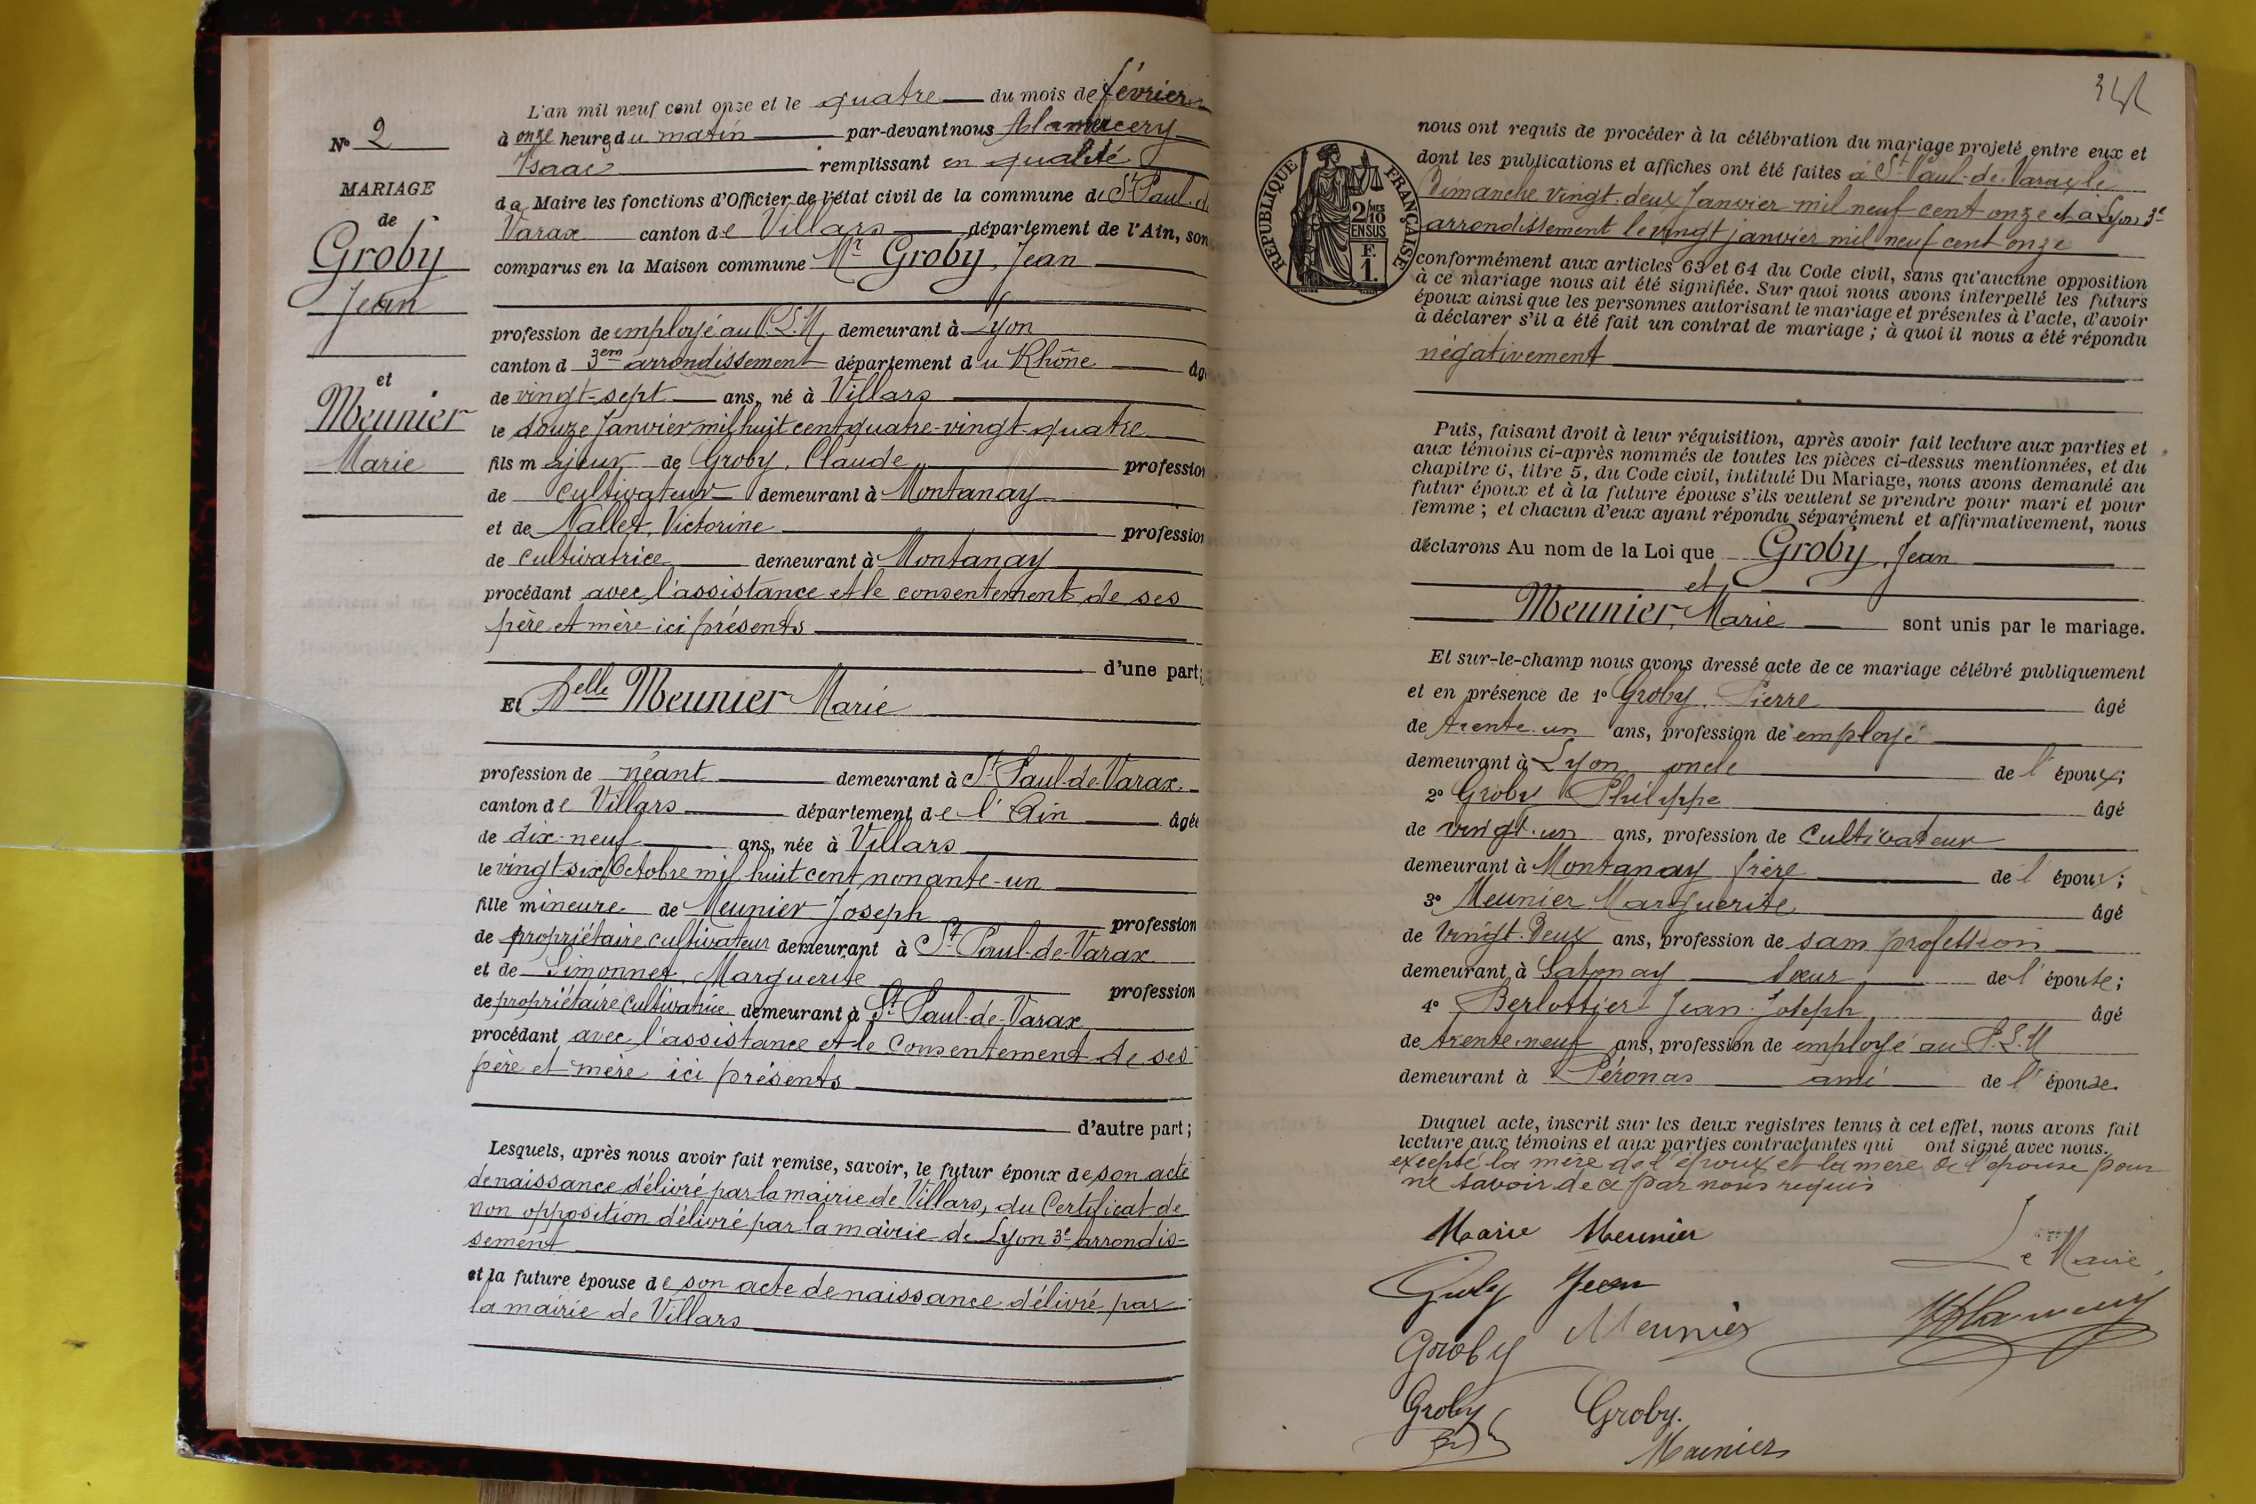 N° 2
MARIAGE
de
Groby
Jean
et
Meunier
Marie
L'an mil neuf cent onze et le quatre du mois de février
à onze heures du matin par-devant nous
Isaac remplissant en qualité
de Maire les fonctions d'Officier de l'état civil de la commune de St Paul-de
Varax canton de Villars département de l'Ain, son
comparus en la Maison commune Mr Groby, Jean
profession de employé au P.L.M. demeurant à Lyon
canton d 3em arrondissement département du Rhône âg
de vingt-sept ans, né à Villars
le douze Janvier mil huit cent quatre-vingt-quatre
fils majeur de Groby, Claude profession
de cultivateur demeurant à Montanay
et de Nallet, Victorine profession
de cultivatrice demeurant à Montanay
procédant avec l'assistance et le consentement de ses
père et mère ici présents
d'une part;
Et Delle Meunier Marie
profession de néant demeurant à St Paul-de-Varax
canton de Villars département de l'Ain âgée
de dix-neuf ans, née à Villars
le vingt-six Octobre mil huit cent nonante-un
fille mineure de Meunier Joseph profession
de propriétaire cultivateur demeurant à St Paul-de-Varax
et de Simonnet, Marguerite profession
de propriétaire cultivatrice demeurant à St Paul-de-Varax
procédant avec l'assistance et le consentement de ses
père et mère ici présents
d'autre part;
Lesquels, après nous avoir fait remise, savoir, le futur époux de son acte
de naissance délivré par la mairie de Villars, du Certificat de
non opposition délivré par la mairie de Lyon 3e arrondis-
sement
et la future épouse de son acte de naissance délivré par
la mairie de Villars
RÉPUBLIQUE FRANÇAISE
2/10mes
EN SUS
F.
1.
nous ont requis de procéder à la célébration du mariage projeté entre eux et
dont les publications et affiches ont été faites à St Paul-de-Varax le
Dimanche vingt-deux Janvier mil neuf cent onze et à Lyon 3e
arrondissement le vingt janvier mil neuf cent onze
conformément aux articles 63 et 64 du Code civil, sans qu'aucune opposition
à ce mariage nous ait été signifiée. Sur quoi nous avons interpellé les futurs
époux ainsi que les personnes autorisant le mariage et présentes à l'acte, d'avoir
à déclarer s'il a été fait un contrat de mariage; à quoi il nous a été répondu
négativement
Puis, faisant droit à leur réquisition, après avoir fait lecture aux parties et
aux témoins ci-après nommés de toutes les pièces ci-dessus mentionnées, et du
chapitre 6, titre 5, du Code civil, intitulé Du Mariage, nous avons demandé au
futur époux et à la future épouse s'ils veulent se prendre pour mari et pour
femme; et chacun d'eux ayant répondu séparément et affirmativement, nous
déclarons Au nom de la Loi que Groby, Jean
et
Meunier, Marie sont unis par le mariage.
Et sur-le-champ nous avons dressé acte de ce mariage célébré publiquement
et en présence de 1° Groby, Pierre âgé
de trente-un ans, profession de employé
demeurant à Lyon oncle de l'époux;
2° Groby Philippe âgé
de vingt-un ans, profession de cultivateur
demeurant à Montanay frère de l'époux;
3° Meunier Marguerite âgé
de vingt-deux ans, profession de sans profession
demeurant à Satonay sœur de l'épouse;
4° Berlottier Jean-Joseph âgé
de trente-neuf ans, profession de employé au P.L.M
demeurant à Péronas ami de l'épouse.
Duquel acte, inscrit sur les deux registres tenus à cet effet, nous avons fait
lecture aux témoins et aux parties contractantes qui ont signé avec nous.
excepté la mère de l'époux et la mère de l'épouse pour
ne savoir de ce par nous requis
Marie Meunier
Le Maire,
Groby Jean
Groby Meunier
Groby Groby.
Meunier